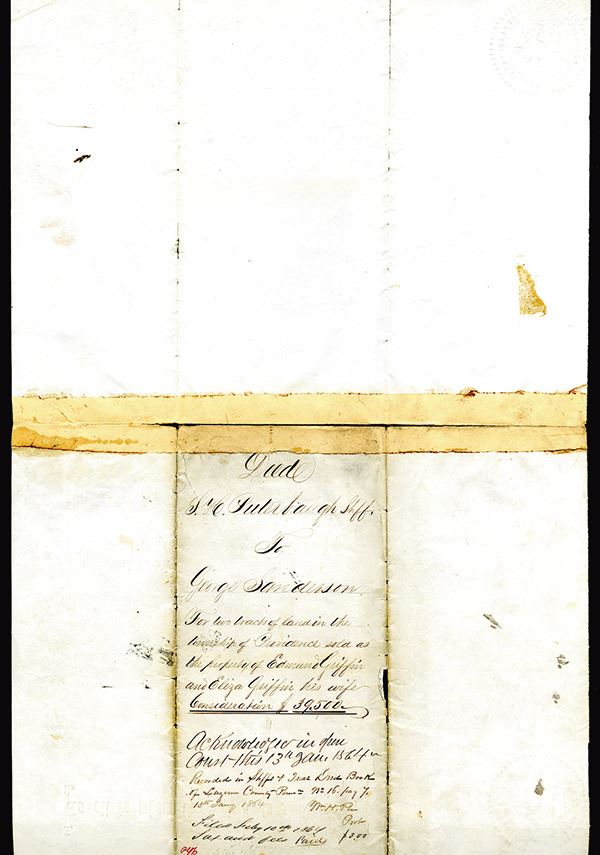 Deed
S. C. Puterbaugh Shff.
To
George Sanderson
For two tracts of land in the
township of Providence sold as
the property of Edmund Griffin
and Eliza Griffin his wife
Consideration $ 39,500
Acknowledged in open
Court this 13th Jan. 1864
Recorded in Shffs & Treas Deed Book
of Luzerne County Penna No 16. pag 7.
13th Jany 1864
Prot
Filed 10th 1864
Tax and fees Paid $3.00